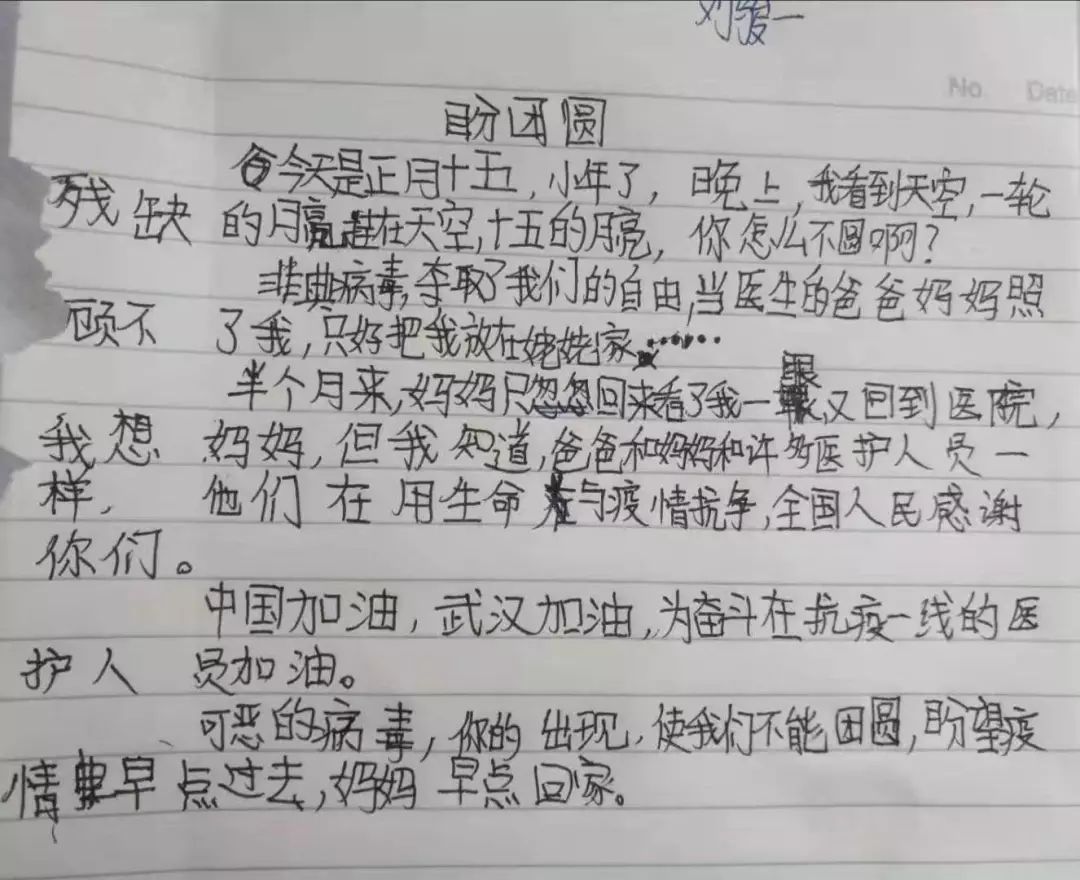 刘骏一
No. Date
盼团圆
今天是正月十五,小年了,晚上,我看到天空,一轮
残缺的月亮挂在天空,十五的月亮,你怎么不圆啊?
非典病毒,夺取了我们的自由,当医生的爸爸妈妈照
顾不了我,只好把我放在姥姥家……
半个月来,妈妈只忽忽回来看了我一眼,又回到医院,
我想妈妈,但我知道,爸爸和妈妈和许多医护人员一
样,他们在用生命与疫情抗争,全国人民感谢
你们。
中国加油,武汉加油,为奋斗在抗疫一线的医
护人员加油。
可恶的病毒,你的出现,使我们不能团圆,盼望疫
情早点过去,妈妈早点回家。